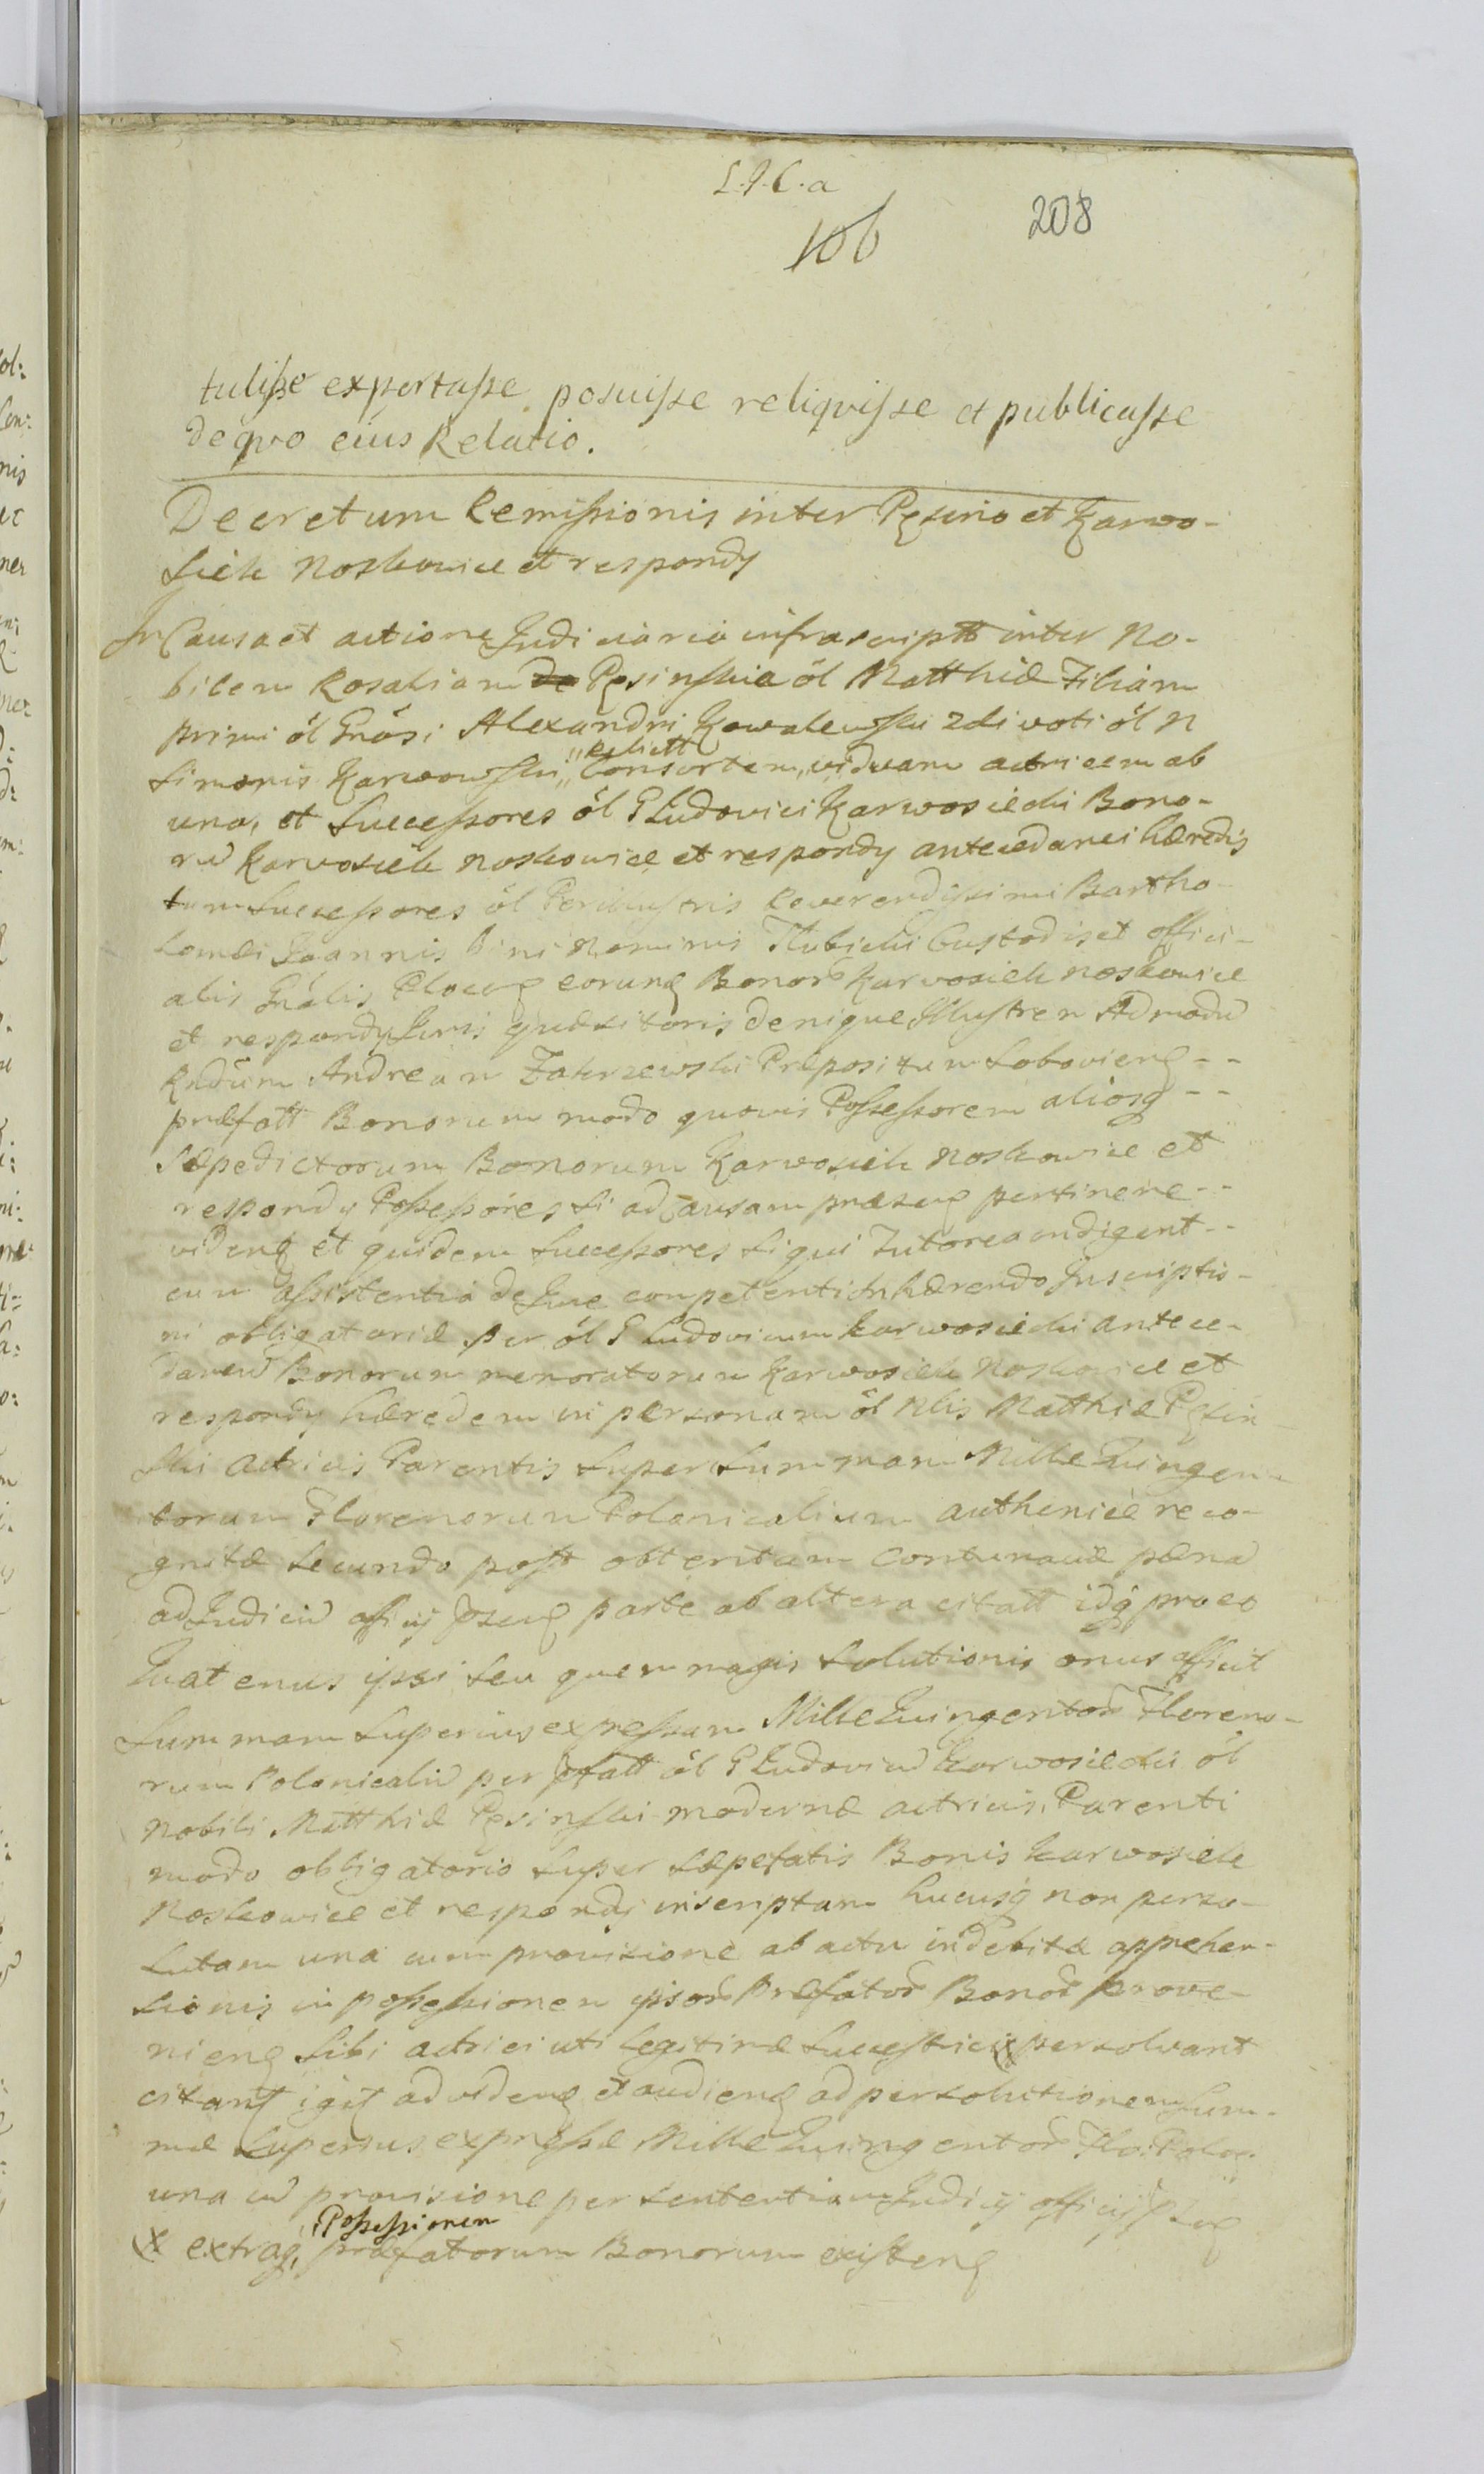 L.J.C.a
106 208
tulisse exportasse posuisse reliqvisse et publicasse
deqvo eius Relatio.
Decretum Remissionis inter Pęsino et Karwo-
siek Noskowice et respondy
In Causa et actione Judiciaria infrascriptt inter No-
bilem Rosaliam de Pęsinskie ol Matthiæ Filiam
primi ol Gnosi Alexandri Kowalewski 2di voti ol N
Simonis Karwowski " Relictt
" Consortem, viduam actricem ab
una, et Successores ol G Ludovici Karwosiecki Bono-
ru Karwosiek Noskowice et respondy antecedanei hæredis
tum Successores ol Perillustris Reverendissimi Bartho-
lomæi Joannis bini Nominis Custodis et offici-
alis Gnalis Plocen eorunq Bonor Karwosiek Noskowice
et respondy Juris quæsitoris denique Illustrem Admodu
Rndum Andream Zakrzewski Præpositum --
præfatt Bonorum modo quovis Possessorem aliosq --
Sæpedictorum Bonorum Karwosiek Noskowice et
respondy Possessores si ad Causam præsen pertinere --
viden et quidem Successores siqui Tutorea indigent --
cum assistentia de Jure competenti Inhærendo Inscriptio-
ni obligatoriæ per ol G Ludovicum Karwosiecki antece-
daneu Bonorum memoratorum Karwosiek Noskowice et
respondy hæredem in personam ol Nlis Matthiæ Pęsin
ski actricis Parentis super Summam Mille Quingen-
torum Florenorum Polonicalium authenice reco-
gnitæ secundo post obtentam contumaciæ pæna
ad Judiciu officij pszen parte ab altera citatt idq pro eo
Quatenus ipsi seu quem magis solutionis onus afficit
Summam superius expressam Mille Quingentor Floreno-
rum Polonicaliu per pfatt ol G Ludovicu Karwosiecki ol
Nobili Matthiæ Pęsinski modernæ actricis Parenti
modo obligatorio super sæpefatis Bonis Karwosiek
Noskowice et respondy inscriptam hucusq non perso-
lutam una cum provisione ab actu indebitæ apprehen-
sionis in possessionem ipsor Præfator Bonor prove-
nien sibi actrici uti legitimæ Successtrici x persolvant
citant igit ad viden et audien ad persolutionem Sum-
mæ Superius expressæ Mille Quingentor Flo: Polon:
una cu provisione per sententiam Judicij officij pszen
x extraq, Possessionem
præfatorum Bonorum existen